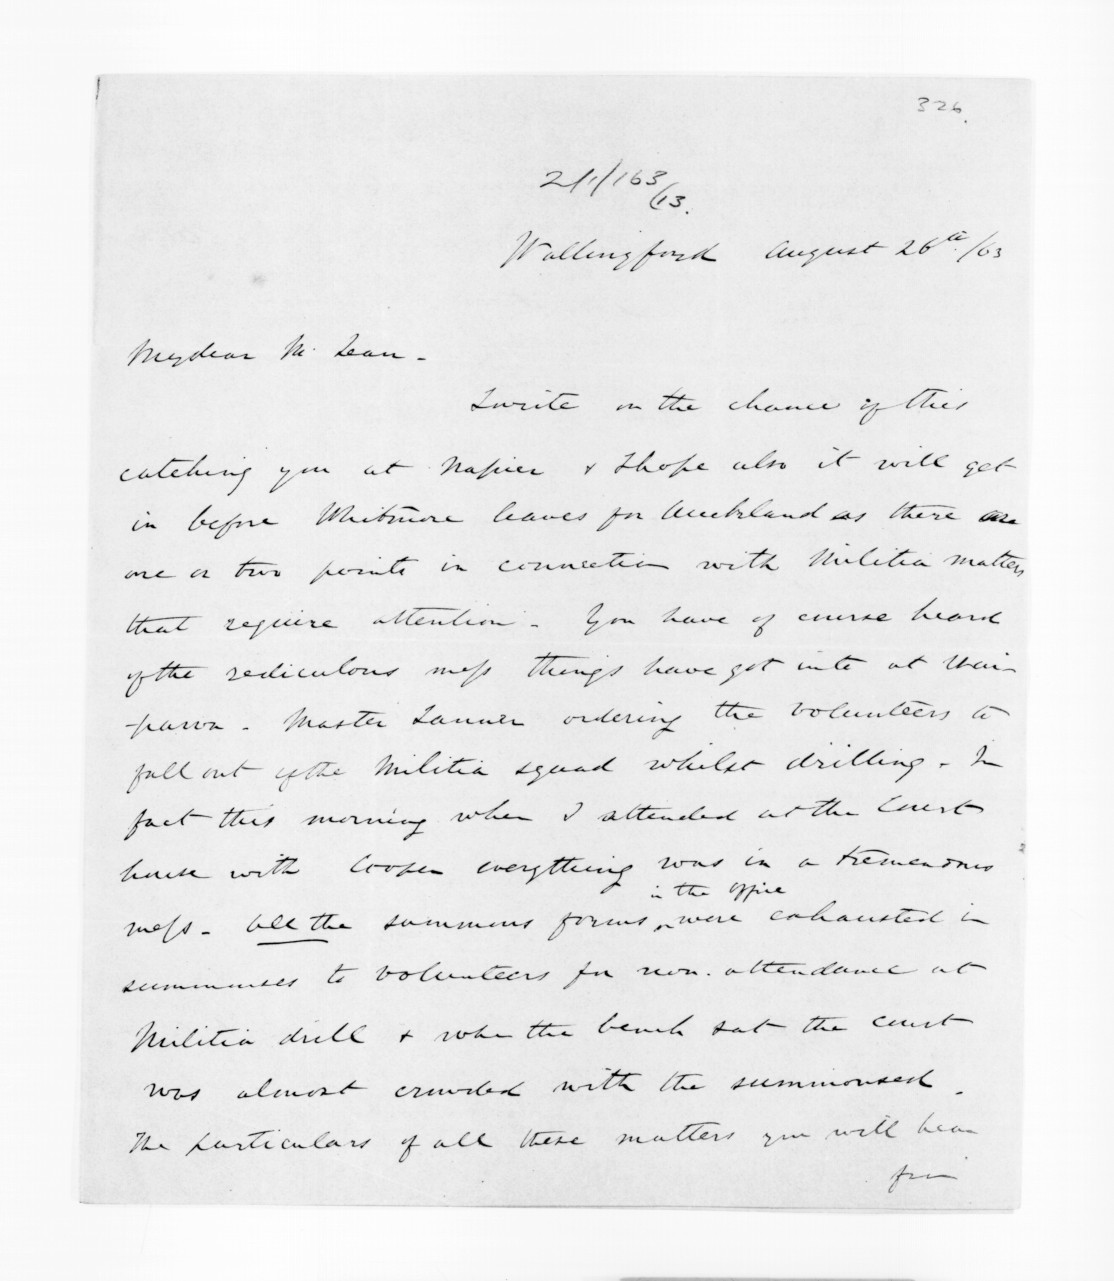 326.
2/1/163
/13.
Wallingford August 26th/63
My dear McLean -
I write on the chance of this
catching you at Napier & I hope also it will get
in before Whitmore leaves for Auckland as there are
one or two points in connection with Militia matters
that require attention - You have of course heard
of the rediculous mess things have got into at Wai-
-pawa - Master Tanner ordering the volunteers to
fall out of the Militia squad whilst drilling - In
fact this morning when I attended at the Court
house with Cooper everything was in a tremendous
in the office
mess - All the summons forms were exhausted in
summonses to volunteers for non-attendance at
Militia drill & when the bench sat the court
was almost crowded with the summonsed -
The particulars of all these matters you will hear
from